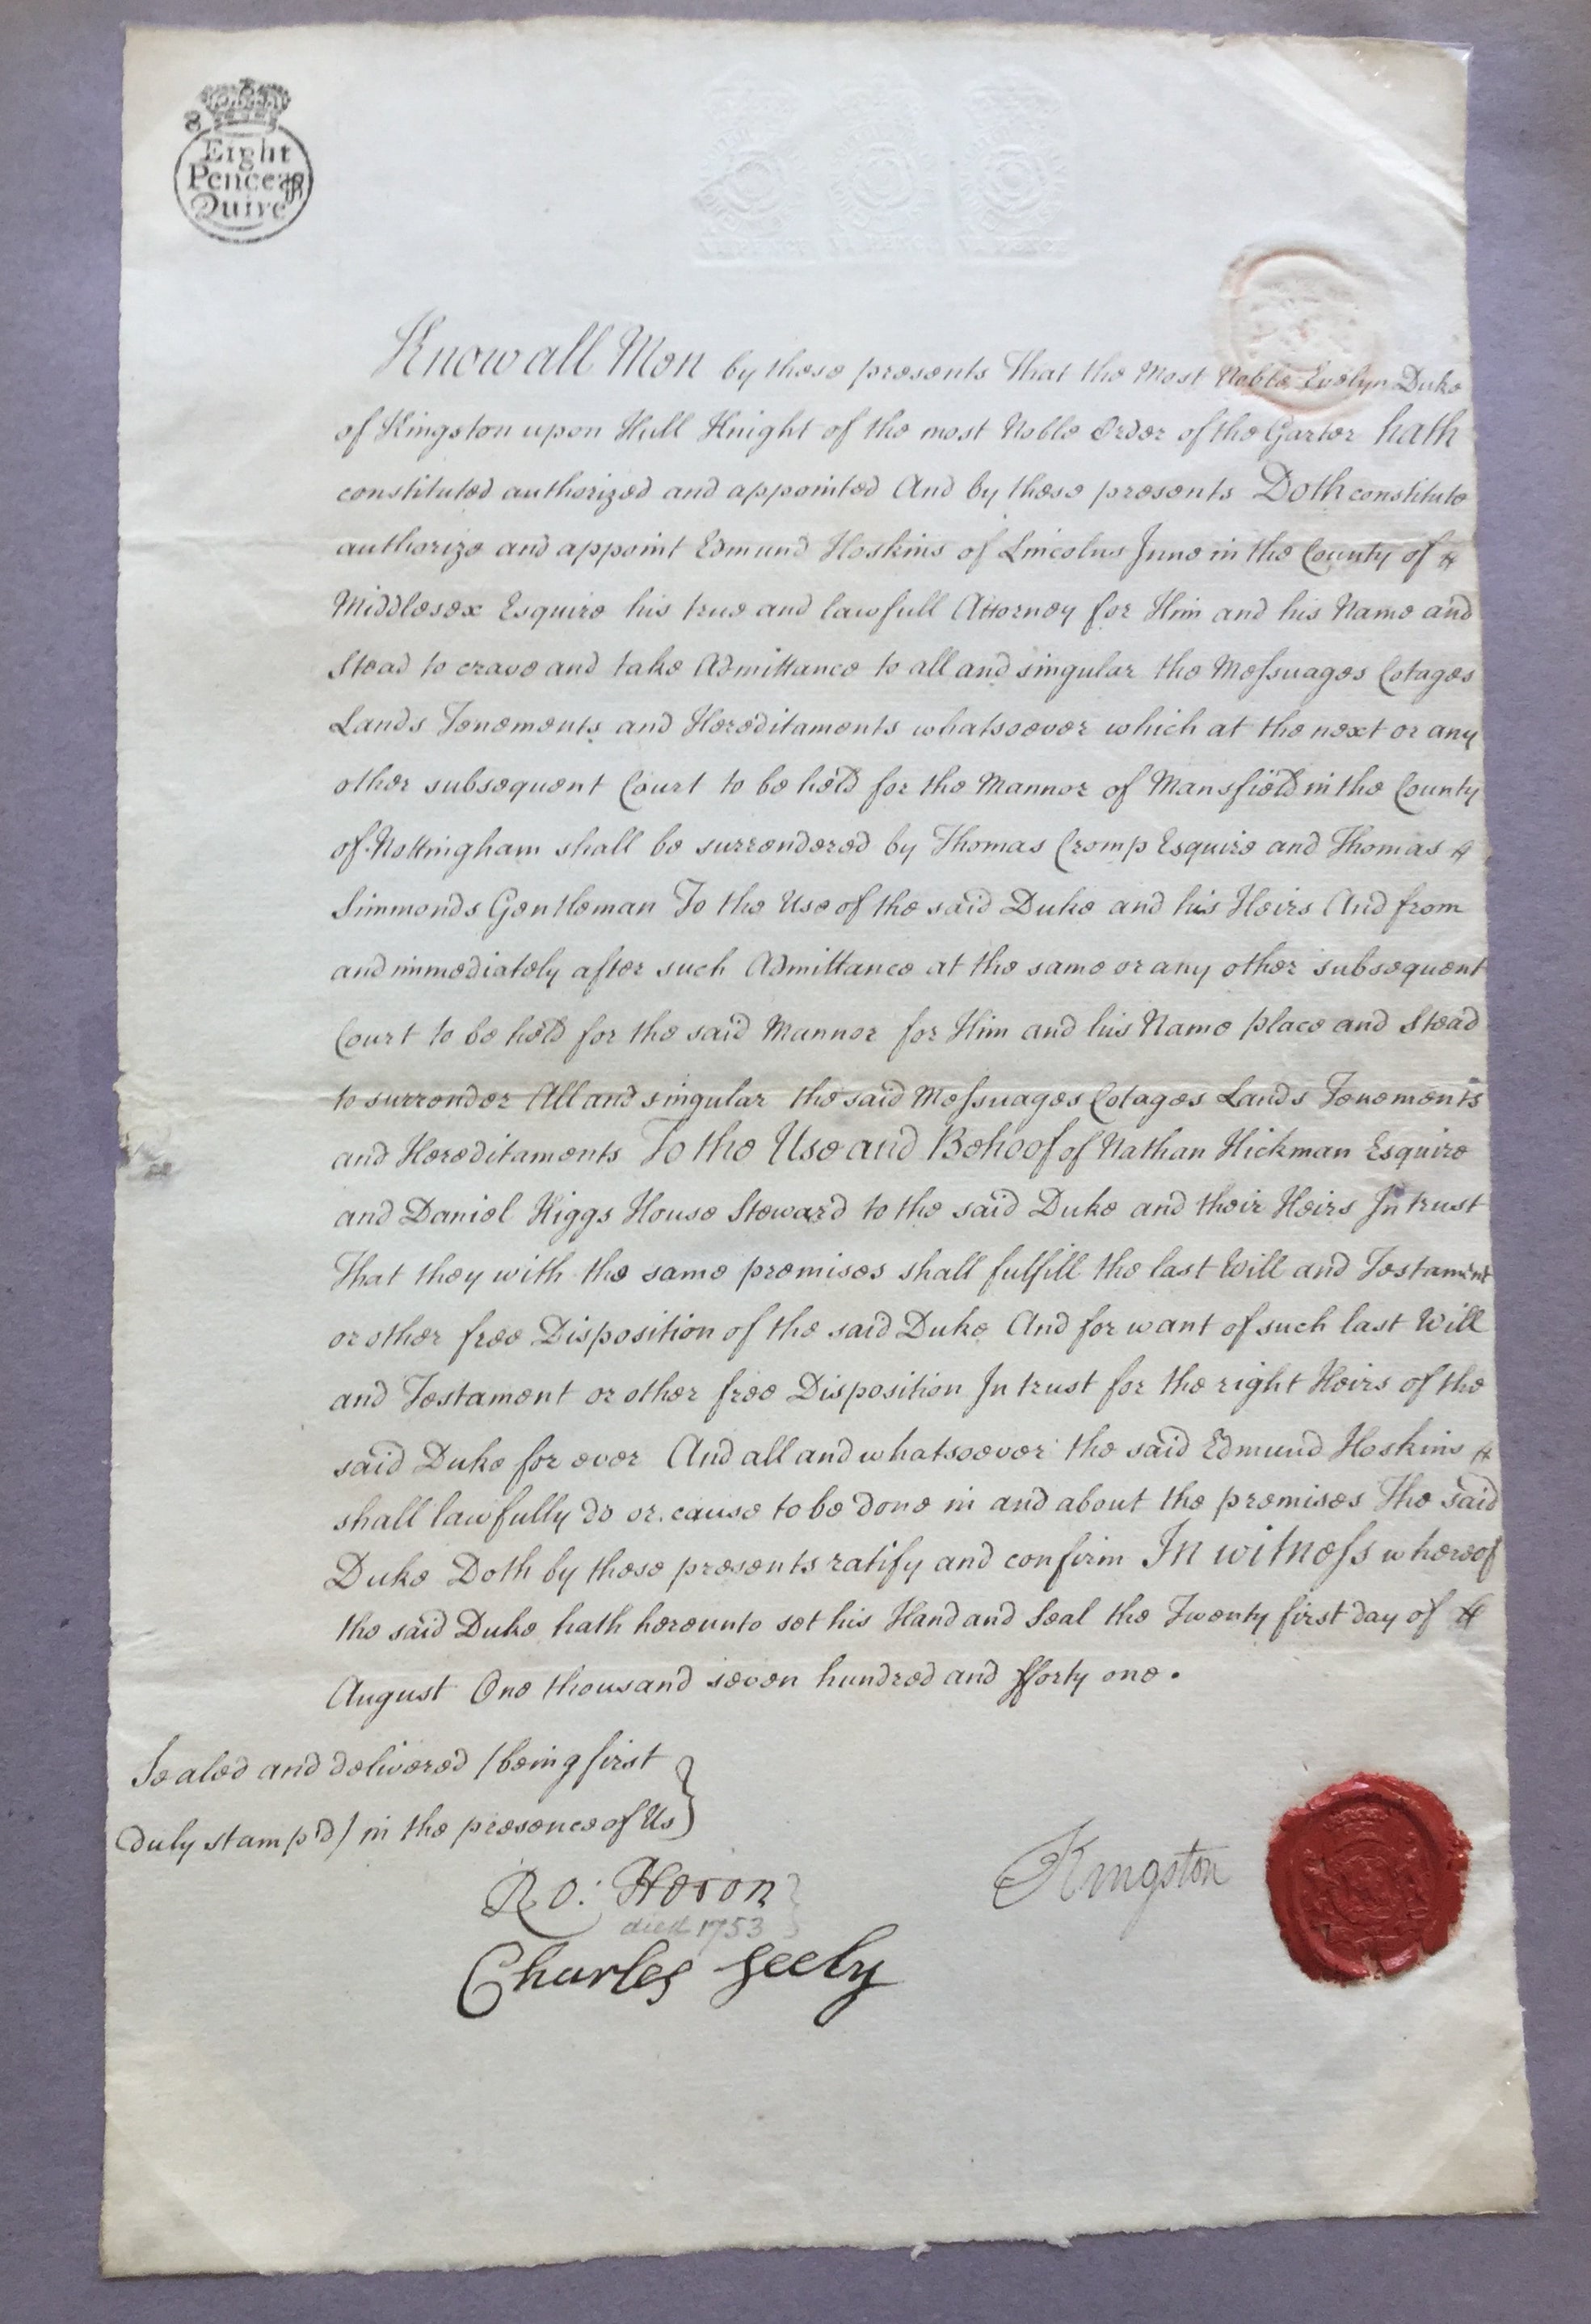 8
Eight
Pence ⅌
Quire
Know all Men by these presents That the Most Noble Evelyn Duke
of Kingston upon Hull Knight of the most Noble Order of the Garter hath
constituted authorized and appointed And by these presents Doth constitute
authorize and appoint Edmund Hoskins of Lincolns Inne in the County of
Middlesex Esquire his true and lawfull Attorney for Him and his Name and
Stead to crave and take Admittance to all and singular the Meſsuages Cotages
Lands Tenements and Hereditaments whatsoever which at the next or any
other subsequent Court to be held for the Mannor of Mansfield in the County
of Nottingham shall be surrendered by Thomas Cromp Esquire and Thomas
Simmonds Gentleman To the Use of the said Duke and his Heirs And from
and immediately after such Admittance at the same or any other subsequent
Court to be held for the said Mannor for Him and his Name place and Stead
to surrender All and singular the said Meſsuages Cotages Lands Tenements
and Hereditaments To the Use and Behoof of Nathan Hickman Esquire
and Daniel Higgs House Steward to the said Duke and their Heirs In trust
That they with the same premises shall fulfill the last Will and Testament
or other free Disposition of the said Duke And for want of such last Will
and Testament or other free Disposition In trust for the right Heirs of the
said Duke for ever And all and whatsoever the said Edmund Hoskins
shall lawfully do or cause to be done in and about the premises The said
Duke Doth by these presents ratify and confirm In witneſs whereof
the said Duke hath hereunto set his Hand and Seal the Twenty first day of
August One thousand seven hundred and fforty one.
Sealed and delivered (being first
duly stamp'd) in the presence of Us
Ro: Heron
died 1753
Charles Seely
Kingston